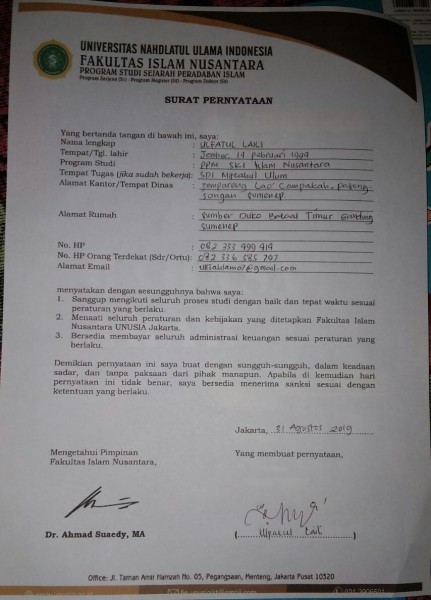 UNIVERSITAS NAHDLATUL ULAMA INDONESIA
FAKULTAS ISLAM NUSANTARA
PROGRAM STUDI SEJARAH PERADABAN ISLAM
Program Sarjana (S1) - Program Magister (S2) - Program Doktor (S3)
SURAT PERNYATAAN
Yang bertanda tangan di bawah ini, saya:
Nama lengkap : ULFATUL LAILI
Tempat/Tgl. lahir : Jember, 14 Februari 1994
Program Studi : PPM SKI Islam Nusantara
Tempat Tugas (jika sudah bekerja): SDI Miftahul Ulum
Alamat Kantor/Tempat Dinas : Campakah,
songan sumenep.
Alamat Rumah : Sumber Duko Timur
sumenep
No. HP : 082 333 999 914
No. HP Orang Terdekat (Sdr/Ortu): 072 336 585 797
Alamat Email : @gmail.com
menyatakan dengan sesungguhnya bahwa saya:
1. Sanggup mengikuti seluruh proses studi dengan baik dan tepat waktu sesuai
peraturan yang berlaku.
2. Menaati seluruh peraturan dan kebijakan yang ditetapkan Fakultas Islam
Nusantara UNUSIA Jakarta.
3. Bersedia membayar seluruh administrasi keuangan sesuai peraturan yang
berlaku.
Demikian pernyataan ini saya buat dengan sungguh-sungguh, dalam keadaan
sadar, dan tanpa paksaan dari pihak manapun. Apabila di kemudian hari
pernyataan ini tidak benar, saya bersedia menerima sanksi sesuai dengan
ketentuan yang berlaku.
Jakarta, 31 Agustus 2019
Mengetahui Pimpinan
Fakultas Islam Nusantara,
Yang membuat pernyataan,
Dr. Ahmad Suaedy, MA
( Ulfatul Laili )
Office: Jl. Taman Amir Hamzah No. 05, Pegangsaan, Menteng, Jakarta Pusat 10320